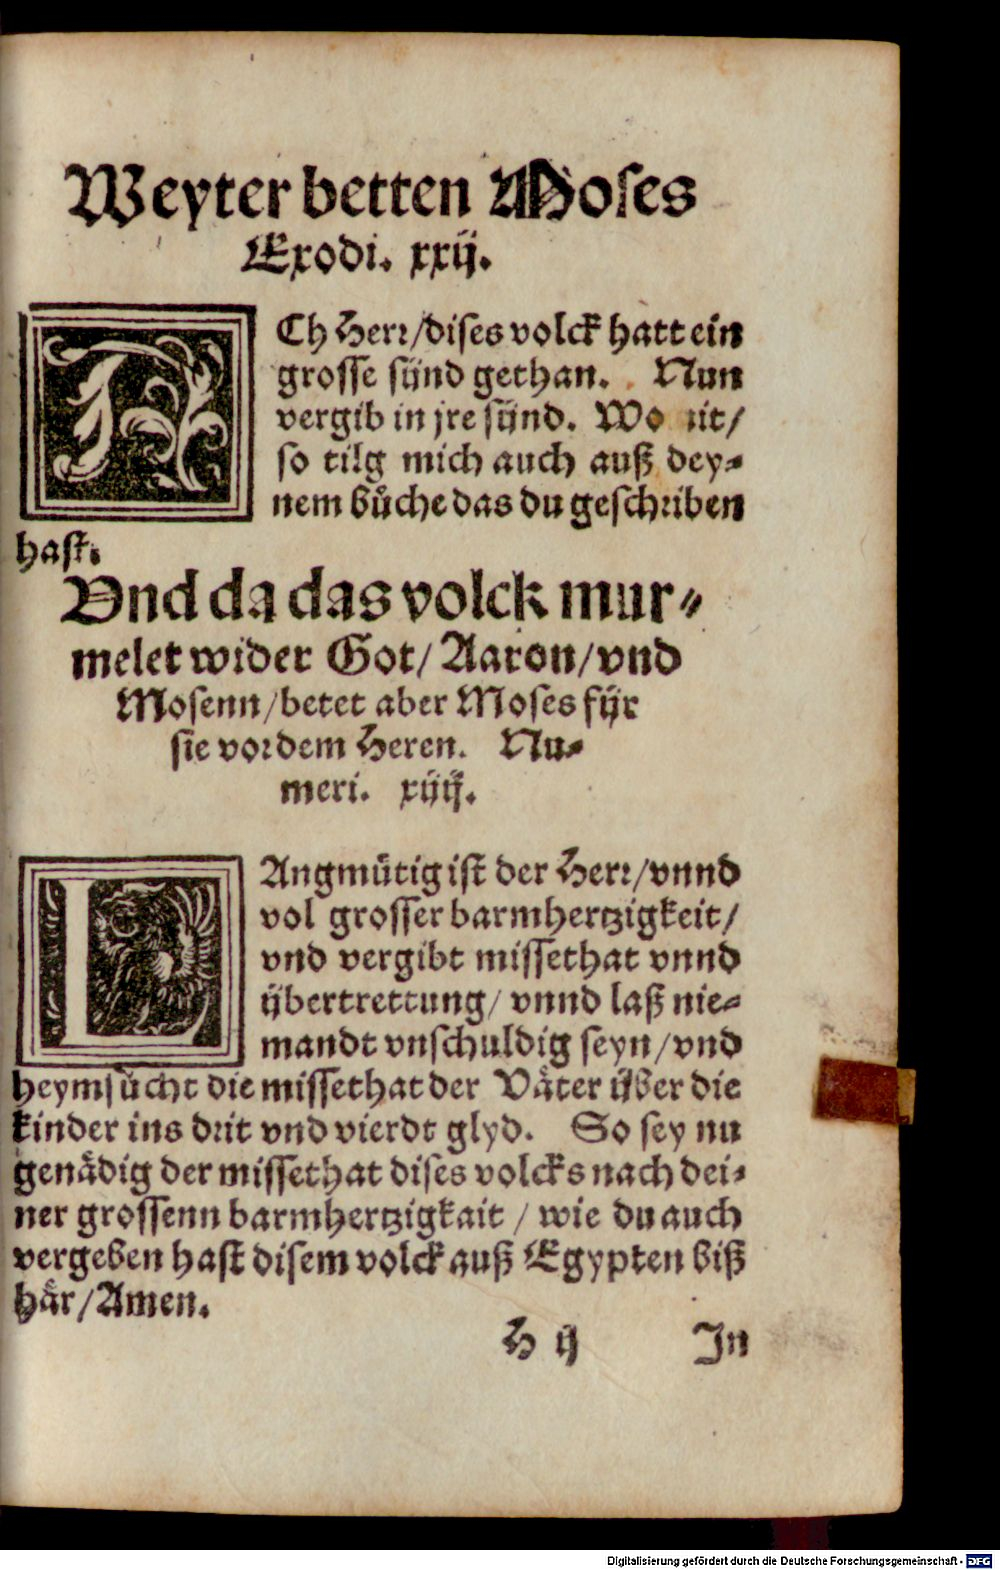 Weyter betten Moses
Exodi. xxij.
ACh Herr/dises volck hatt ein
grosse sünd gethan. Nun
vergib in jre sünd. Wo
so tilg mich auch auß dey⸗
nem bůche das du geschriben
hast.
Vnd da das volck mur⸗
melet wider Got/Aaron/vnd
Mosenn/betet aber Moses für
sie vor dem Heren. Nu⸗
meri. xiiij.
LAngmütig ist der Herr/vnnd
vol grosser barmhertzigkeit/
vnd vergibt missethat vnnd
übertrettung/vnnd laß nie⸗
mandt vnschuldig seyn/vnd
heymsůcht die missethat der Väter über die
kinder ins drit vnd vierdt glyd. So sey nu
genädig der missethat dises volcks nach dei⸗
ner grossenn barmhertzigkait / wie du auch
vergeben hast disem volck auß Egypten biß
här/Amen.
H ij In
Digitalisierung gefördert durch die Deutsche Forschungsgemeinschaft - DFG